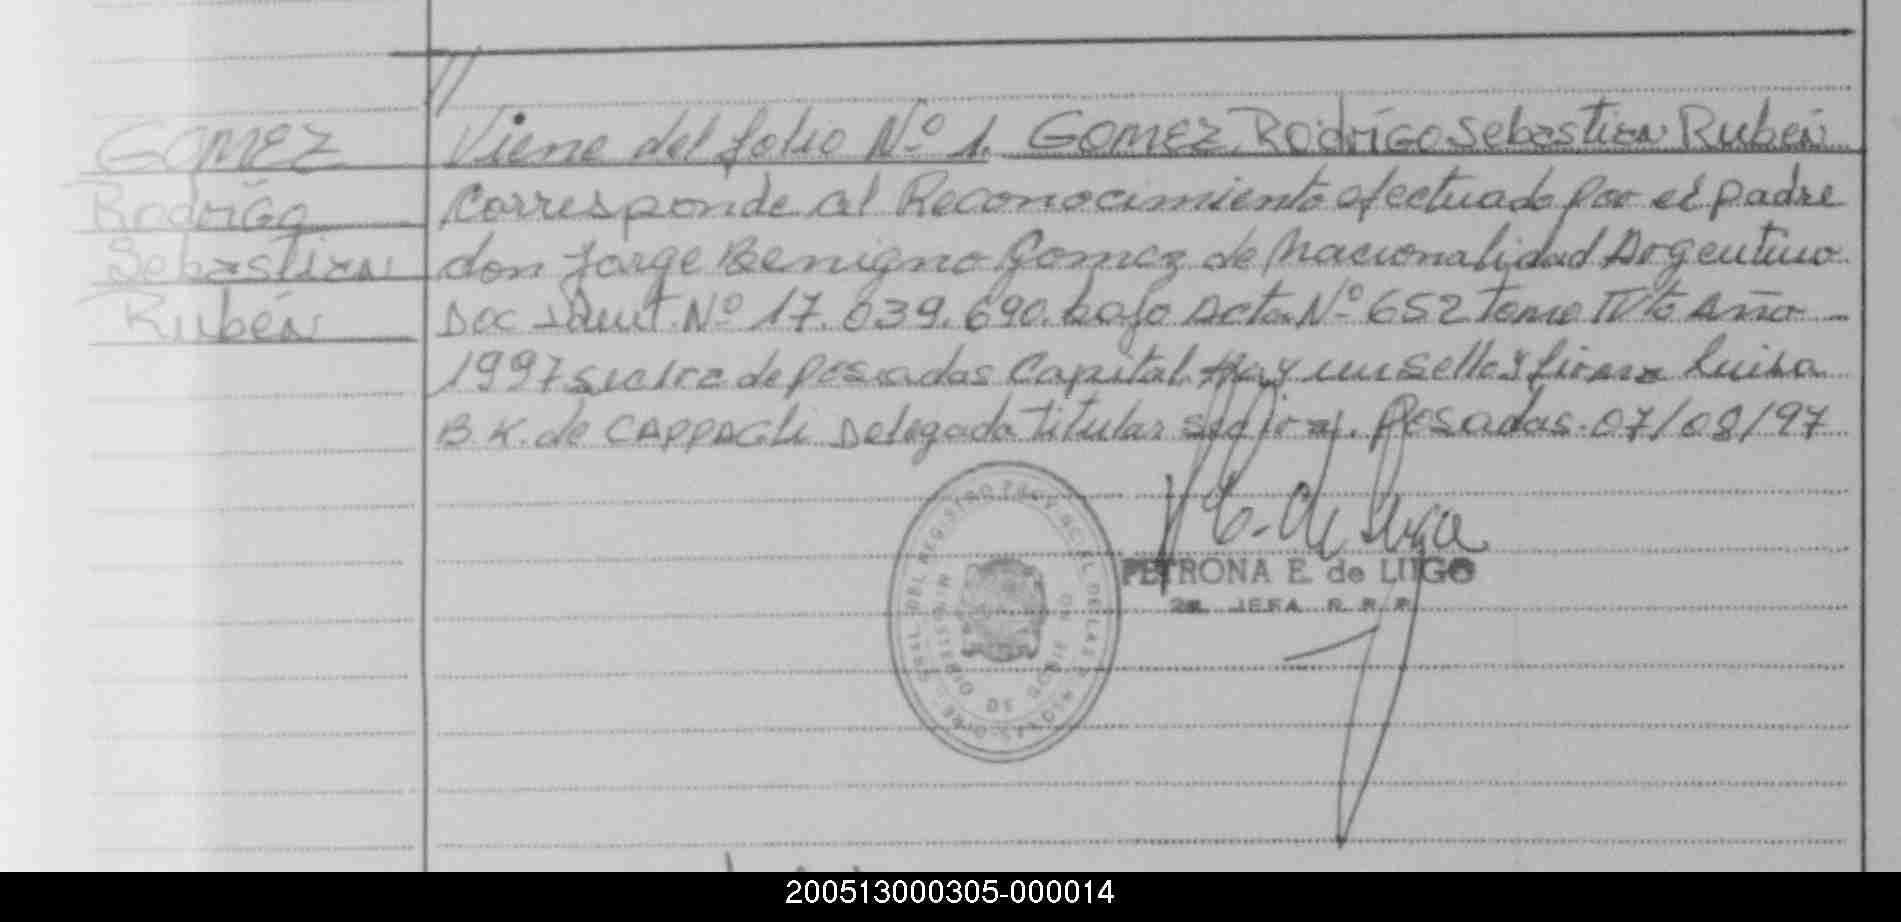 GOMEZ
Rodrigo
Sebastian
Rubén
// Viene del folio Nº 1. GOMEZ, Rodrigo Sebastian Rubén
Corresponde al Reconocimiento efectuado por el padre
don Jorge Benigno Gomez de Nacionalidad Argentino
Doc Ident. Nº 17.039.690. bajo Acta Nº 652 tomo IVto Año
1997 de Posadas Capital. Hay un sello y firma Luisa
B. K. de CAPPAGLI Delegada titular Posadas. 07/08/97
PETRONA E. de LUGO
2a. JEFA R. P. P.
DEL REGISTRO PROVINCIAL DE LAS PERSONAS
DE
200513000305-000014